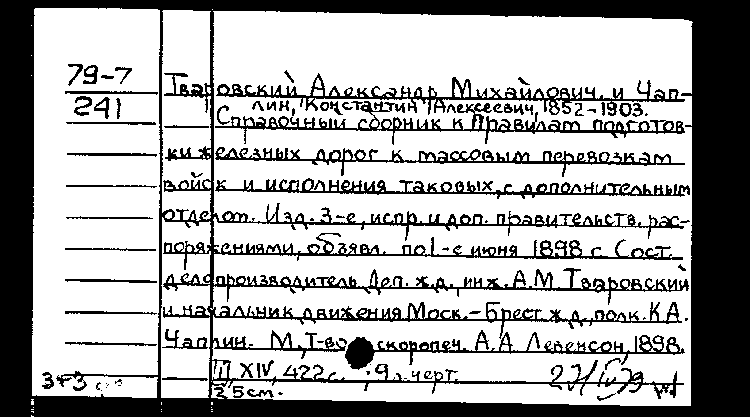 79-7
241
Тваровский Александр Михайлович и Чап-
лин, Константин Алексеевич, 1852-1903.
Справочный сборник к Правилам подготов-
ки железных дорог к массовым перевозкам
войск и исполнения таковых, с дополнительным
отделом. Изд. 3-е, испр. и доп. правительств. рас-
поряжениями, объявл. по 1-е июня 1898 г. Сост.
делопроизводитель Деп. ж.д., инж. А.М. Тваровский
и начальник движения Моск.-Брест ж.д., полк. К.А.
Чаплин. М., Т-во скоропеч. А.А. Левенсон, 1898.
II, XIV, 422 с. ; 9 л. черт.
25 см.